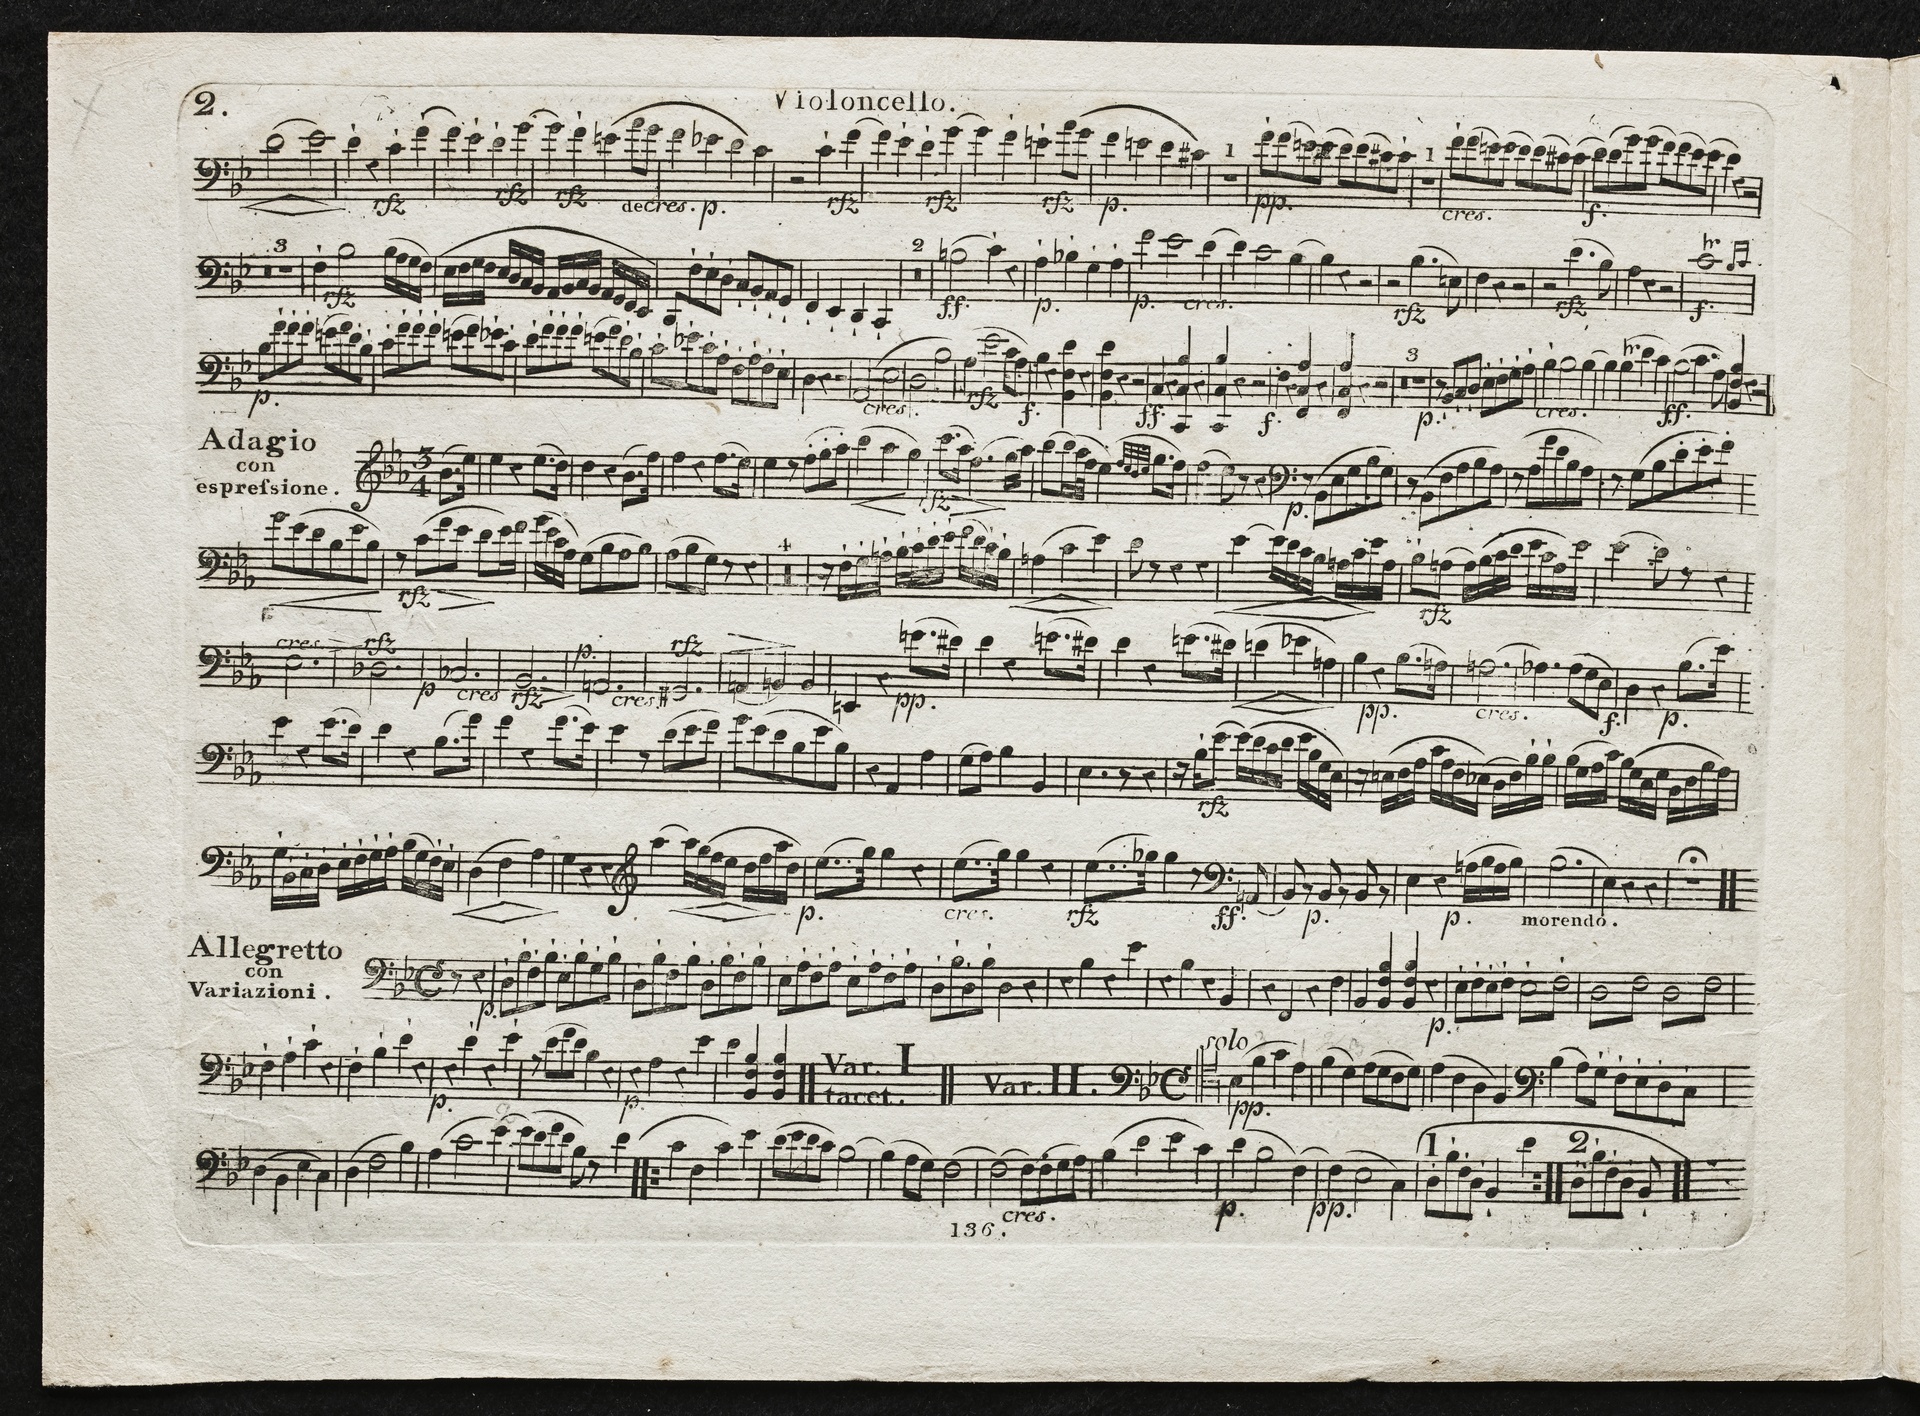 2.
Violoncello.
rfz rfz rfz decres. p. rfz rfz rfz p. 1 pp. 1 cres. f.
3 rfz 2 ff. p. p. cres. rfz rfz f.
p. cres. rfz f. ff. f. 3 p. cres. ff.
Adagio
con
espreſsione.
3
4
rfz p.
rfz 4 rfz
cres. rfz p cres rfz p. cres. rfz pp. pp. cres. f. p.
rfz
p. cres. rfz ff. p. p. morendo.
Allegretto
con
Variazioni.
p. p.
p. p. Var. I tacet. Var. II. solo pp.
cres. p. pp. 1 2
136.